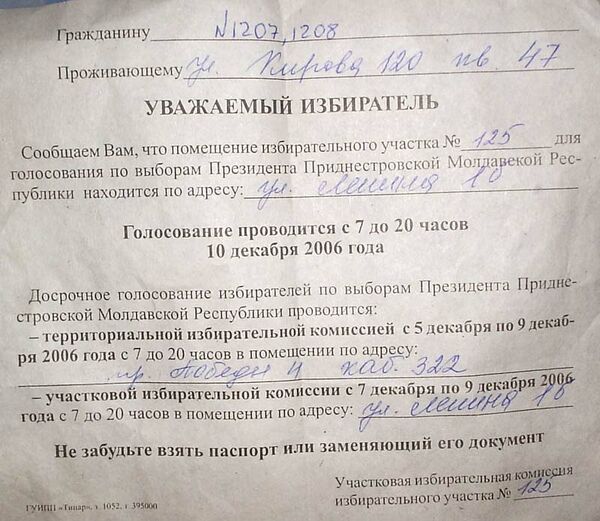 Гражданину N1207, 1208
Проживающему ул. Кирова 120 кв. 47
УВАЖАЕМЫЙ ИЗБИРАТЕЛЬ
Сообщаем Вам, что помещение избирательного участка № 125 для
голосования по выборам Президента Приднестровской Молдавской Рес-
публики находится по адресу: ул. Ленина 1б
Голосование проводится с 7 до 20 часов
10 декабря 2006 года
Досрочное голосование избирателей по выборам Президента Придне-
стровской Молдавской Республики проводится:
– территориальной избирательной комиссией с 5 декабря по 9 декаб-
ря 2006 года с 7 до 20 часов в помещении по адресу:
пр. Победы 4 каб. 322
– участковой избирательной комиссии с 7 декабря по 9 декабря 2006
года с 7 до 20 часов в помещении по адресу: ул. Ленина 1б
Не забудьте взять паспорт или заменяющий его документ
Участковая избирательная комиссия
избирательного участка № 125
ГУИПП «Типар», з. 1052, т. 395000